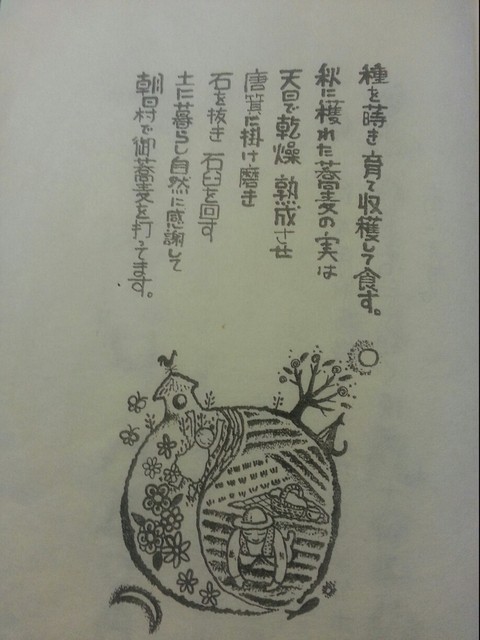 種を蒔き 育て収穫して食す。
秋に穫れた蕎麦の実は
天日で乾燥 熟成させ
唐箕に掛け磨き
石を抜き 石臼を回す
土に暮らし自然に感謝して
朝日村で御蕎麦を打ってます。